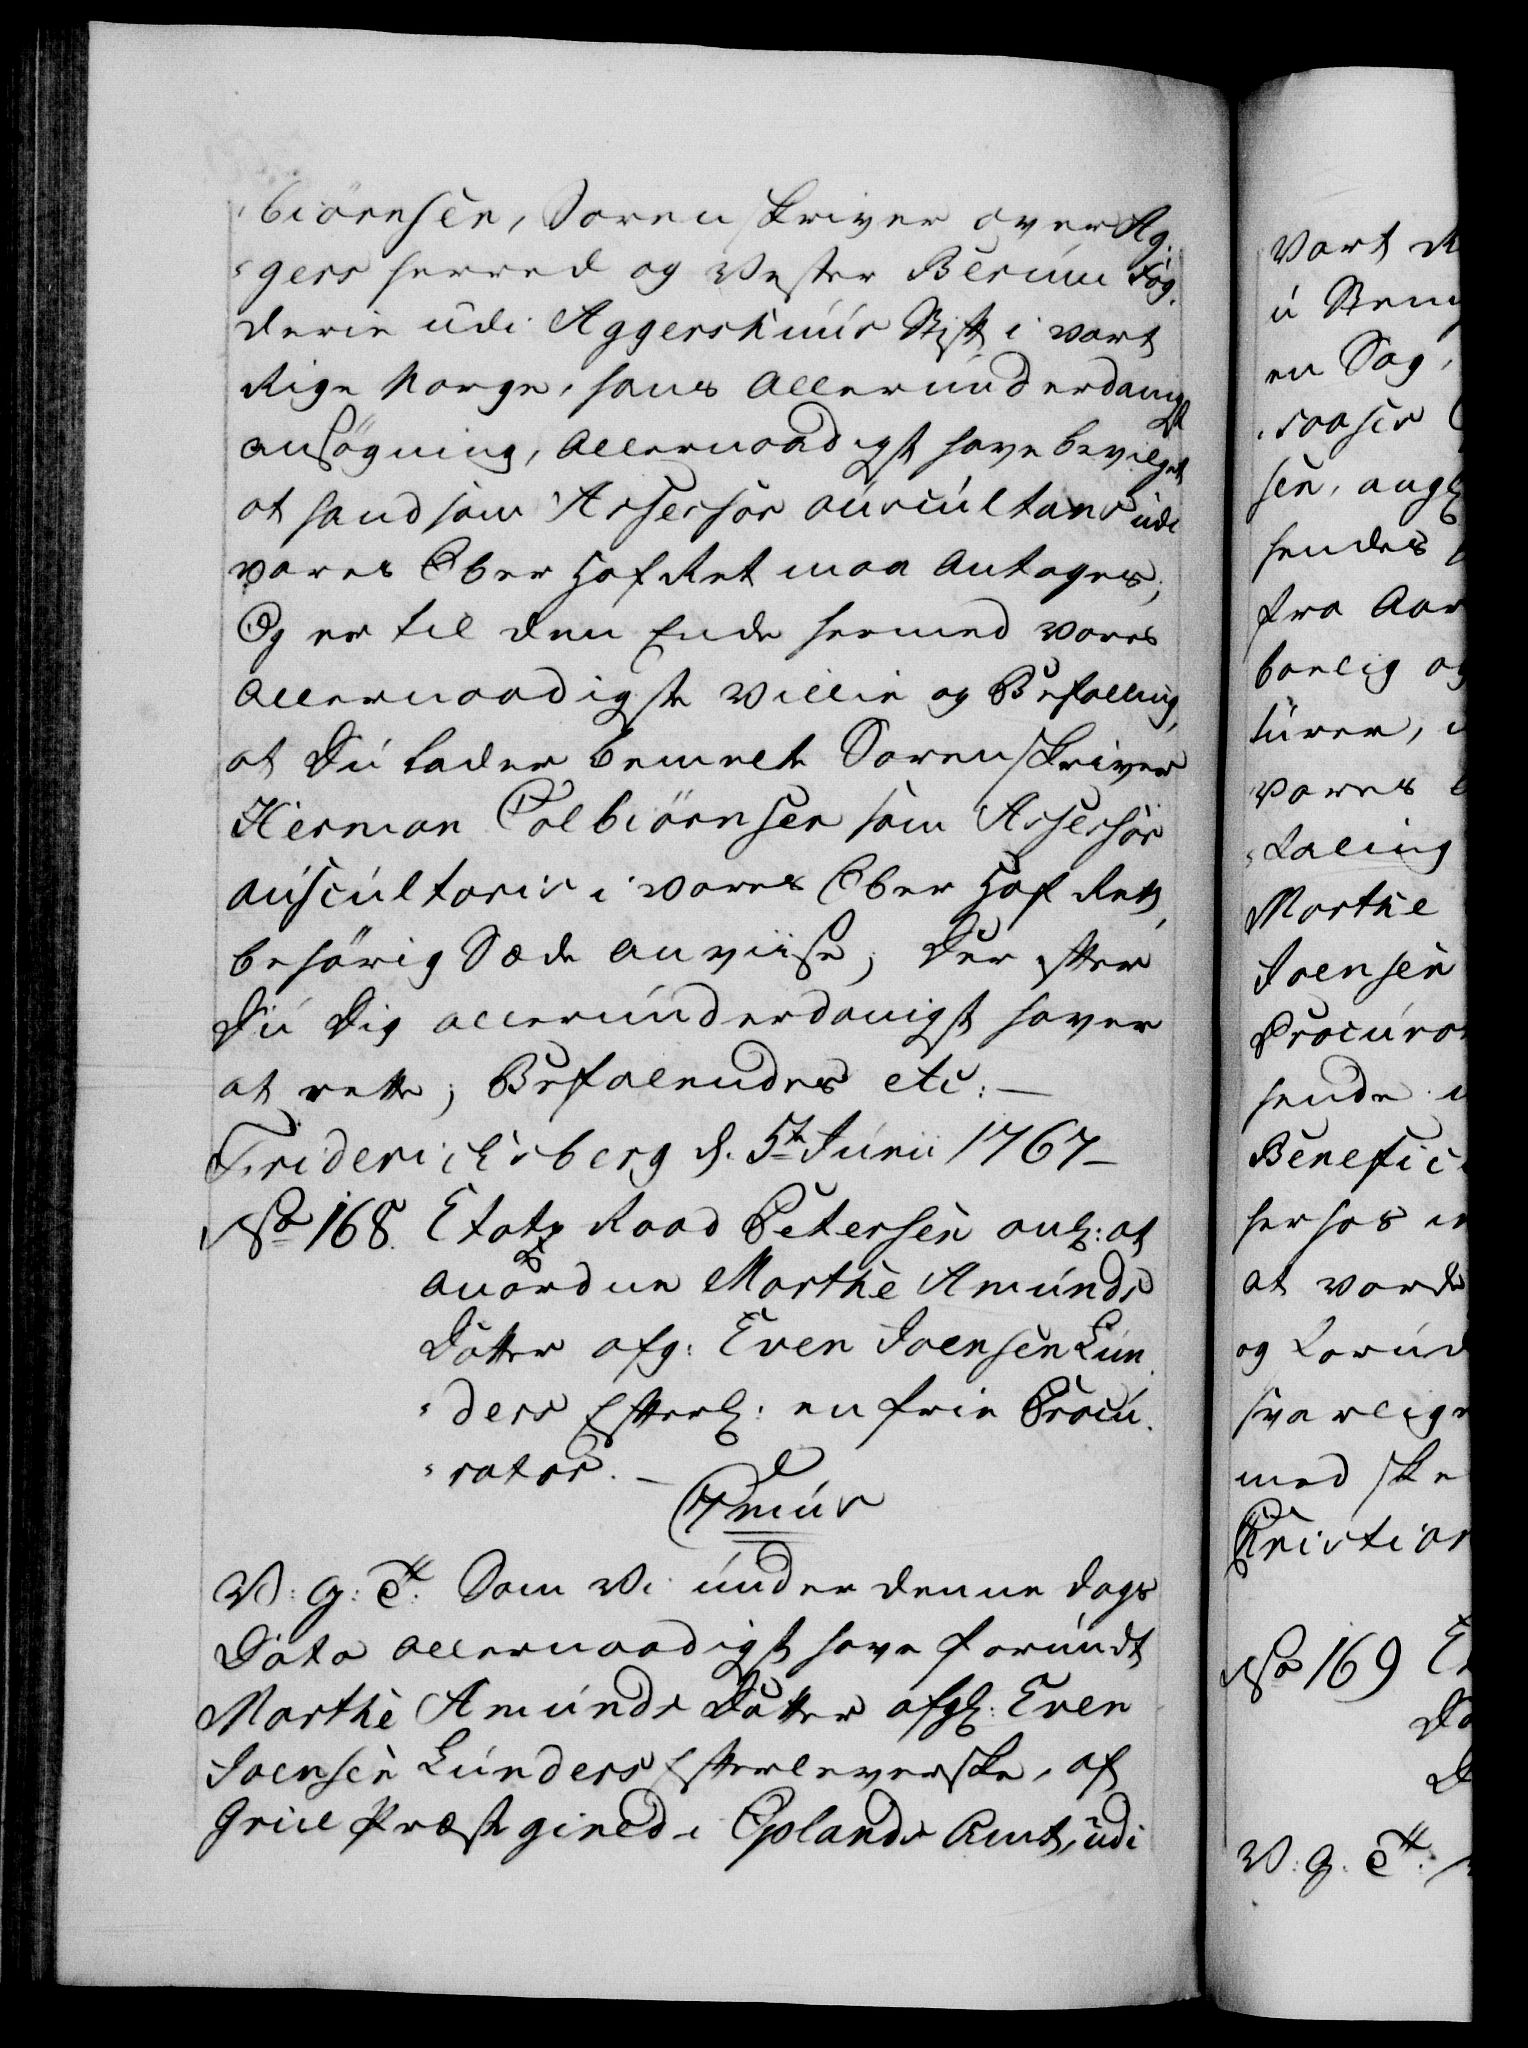 biörnsen, Sorenskriver over Ag-
gers herred og Vester Berum Fog-
derie udi Aggershuus Stift i vort
Rige Norge, hans allerunderdanigst
ansögning, allernaadigst have bevilget
at hand som Assessor auscultans udi
vores Ober Hof Ret maa antages;
Og er til den Ende hermed vores
allernaadigste Villie og Befalling,
at Du lader bemelte Sorenskriver
Herman Colbiörnsen som Assessor
auscultoris i vores Ober Hof Rett,
behörig Sæde anviise; Der efter
Du Dig allerunderdanigst haver
at rette; Befalendes etc: —
Friderichsberg d. 5te Junii 1767 —
No 168. Etatz Raad Petersen anl: at
anordne Marthe Amunds
Datter afg: Even Joensen Lun-
ders Efterl: en frie Procu-
rator. —
7mus
V: G: T: Som Vi under denne Dags
Dato allernaadigst have forundt
Marthe Amunds Datter afgl: Even
Joensen Lunders Efterleverske, af
Grue Præstegield i Oplands Amt, udi
Vort R
en Sag,
sen, angl
hendes
fra Aar
barlig og
turer,
vores
Marthe
Joensen
Procurat
hende
Benefici
hersos
at vorde
og Forund
svarlige
med ske
Christian
No 169 E
Da
D
V: G: T: